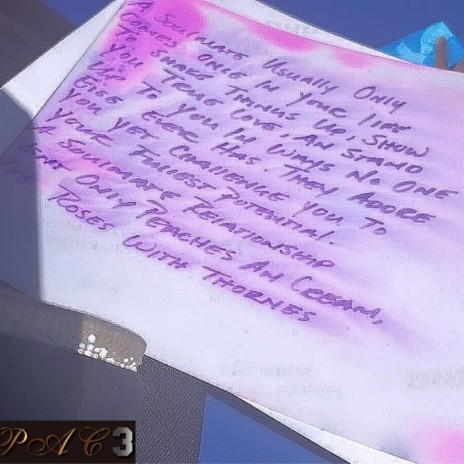 A Soulmate Usually Only
Comes Once In Your Life
To Shake Things Up, Show
You True Love, An Stand
Up To You In Ways No One
Else Ever Has. They Adore
You Yet Challenge You To
Your Fullest Potential.
A Soulmate Relationship
Isnt Only Peaches An Cream,
Its Roses With Thornes
PAC3